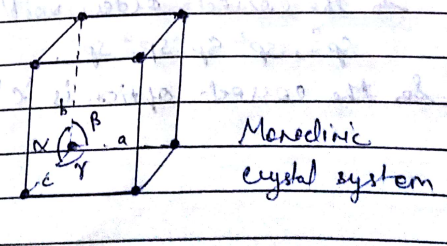 b
β
α a
c γ
Monoclinic
crystal system